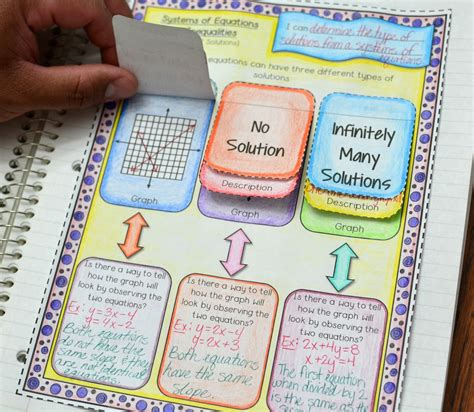 Systems of Equations
equalities
Solutions)
I can determine the type of
solutions from a systems of
equations
equations can have three different types of
solutions
No
Solution
Description
Graph
Infinitely
Many
Solutions
Description
Graph
Graph
Is there a way to tell
how the graph will
look by observing the
two equations?
Ex: y=3x-4
y=4x-2
Both equations
do not have the
same slope, they
are not identical
Is there a way to tell
how the graph will
look by observing the
two equations?
Ex: y=2x-4
y=2x+3
Both equations
have the same
slope.
Is there a way to tell
how the graph will
look by observing the
two equations?
Ex: 2x+4y=8
x+2y=4
The first equation
when divided by 2
is the same